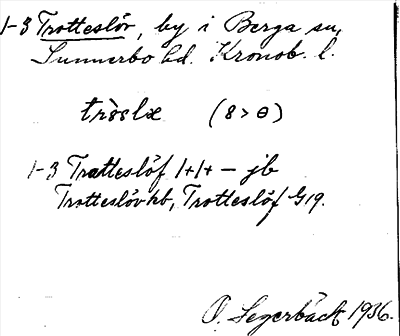 1-3 Trotteslöv, by i Berga sn,
Sunnerbo hd. Kronob. l.
(8 > ɵ)
1-3 Tratteslöf 1+1+ – jb
Trotteslöv hb, Trotteslöf G19.
O. Segerbäck 1936.